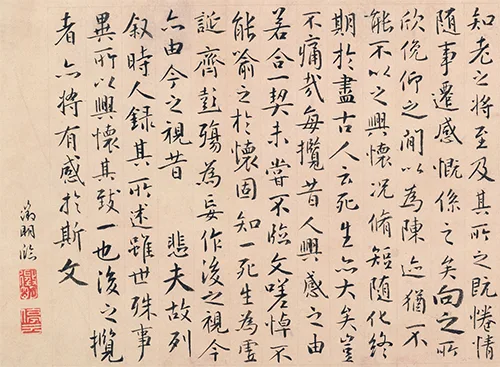 知老之將至及其所之既惓情
隨事遷感慨係之矣向之所
欣俛仰之間以為陳迹猶不
能不以之興懷況脩短隨化終
期於盡古人云死生亦大矣豈
不痛哉每攬昔人興感之由
若合一契未嘗不臨文嗟悼不
能喻之於懷固知一死生為虛
誕齊彭殤為妄作後之視今
亦由今之視昔 悲夫故列
叙時人錄其所述雖世殊事
異所以興懷其致一也後之攬
者亦將有感於斯文
徵明臨